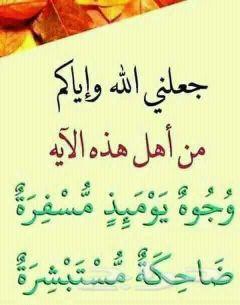 جعلني الله وإياكم
من أهل هذه الآيه
وُجُوهٌ يَوْمَئِذٍ مُّسْفِرَةٌ
ضَاحِكَةٌ مُّسْتَبْشِرَةٌ